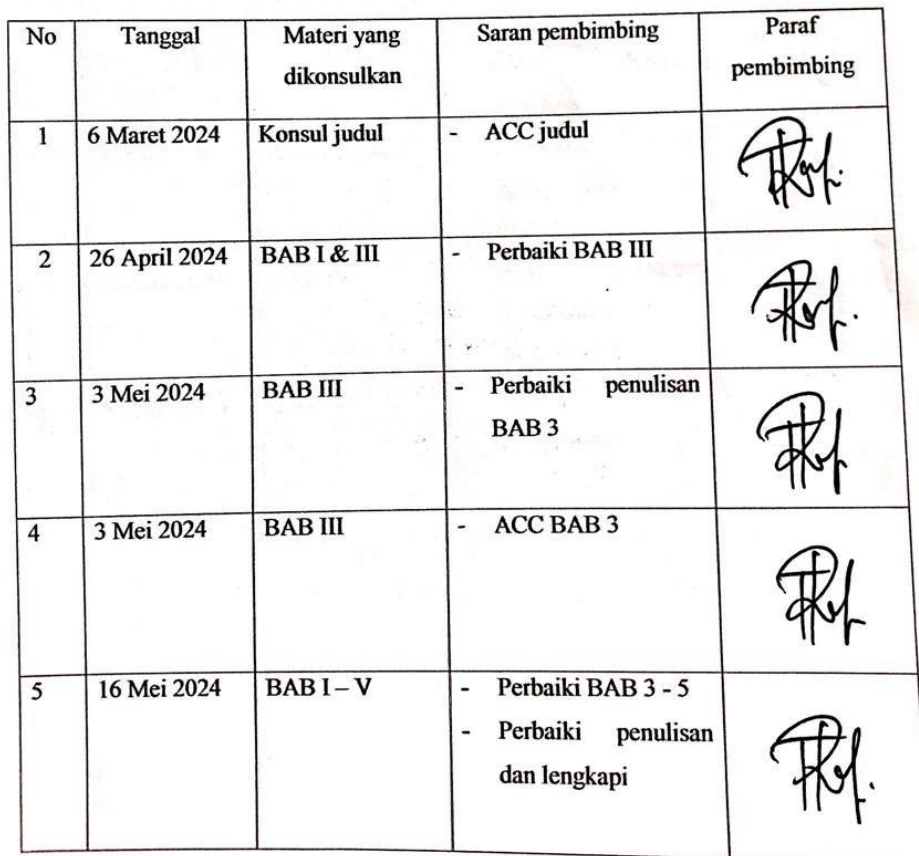 No Tanggal Materi yang Saran pembimbing Paraf
dikonsulkan pembimbing
1 6 Maret 2024 Konsul judul - ACC judul
2 26 April 2024 BAB I & III - Perbaiki BAB III
3 3 Mei 2024 BAB III - Perbaiki penulisan
BAB 3
4 3 Mei 2024 BAB III - ACC BAB 3
5 16 Mei 2024 BAB I – V - Perbaiki BAB 3 - 5
- Perbaiki penulisan
dan lengkapi